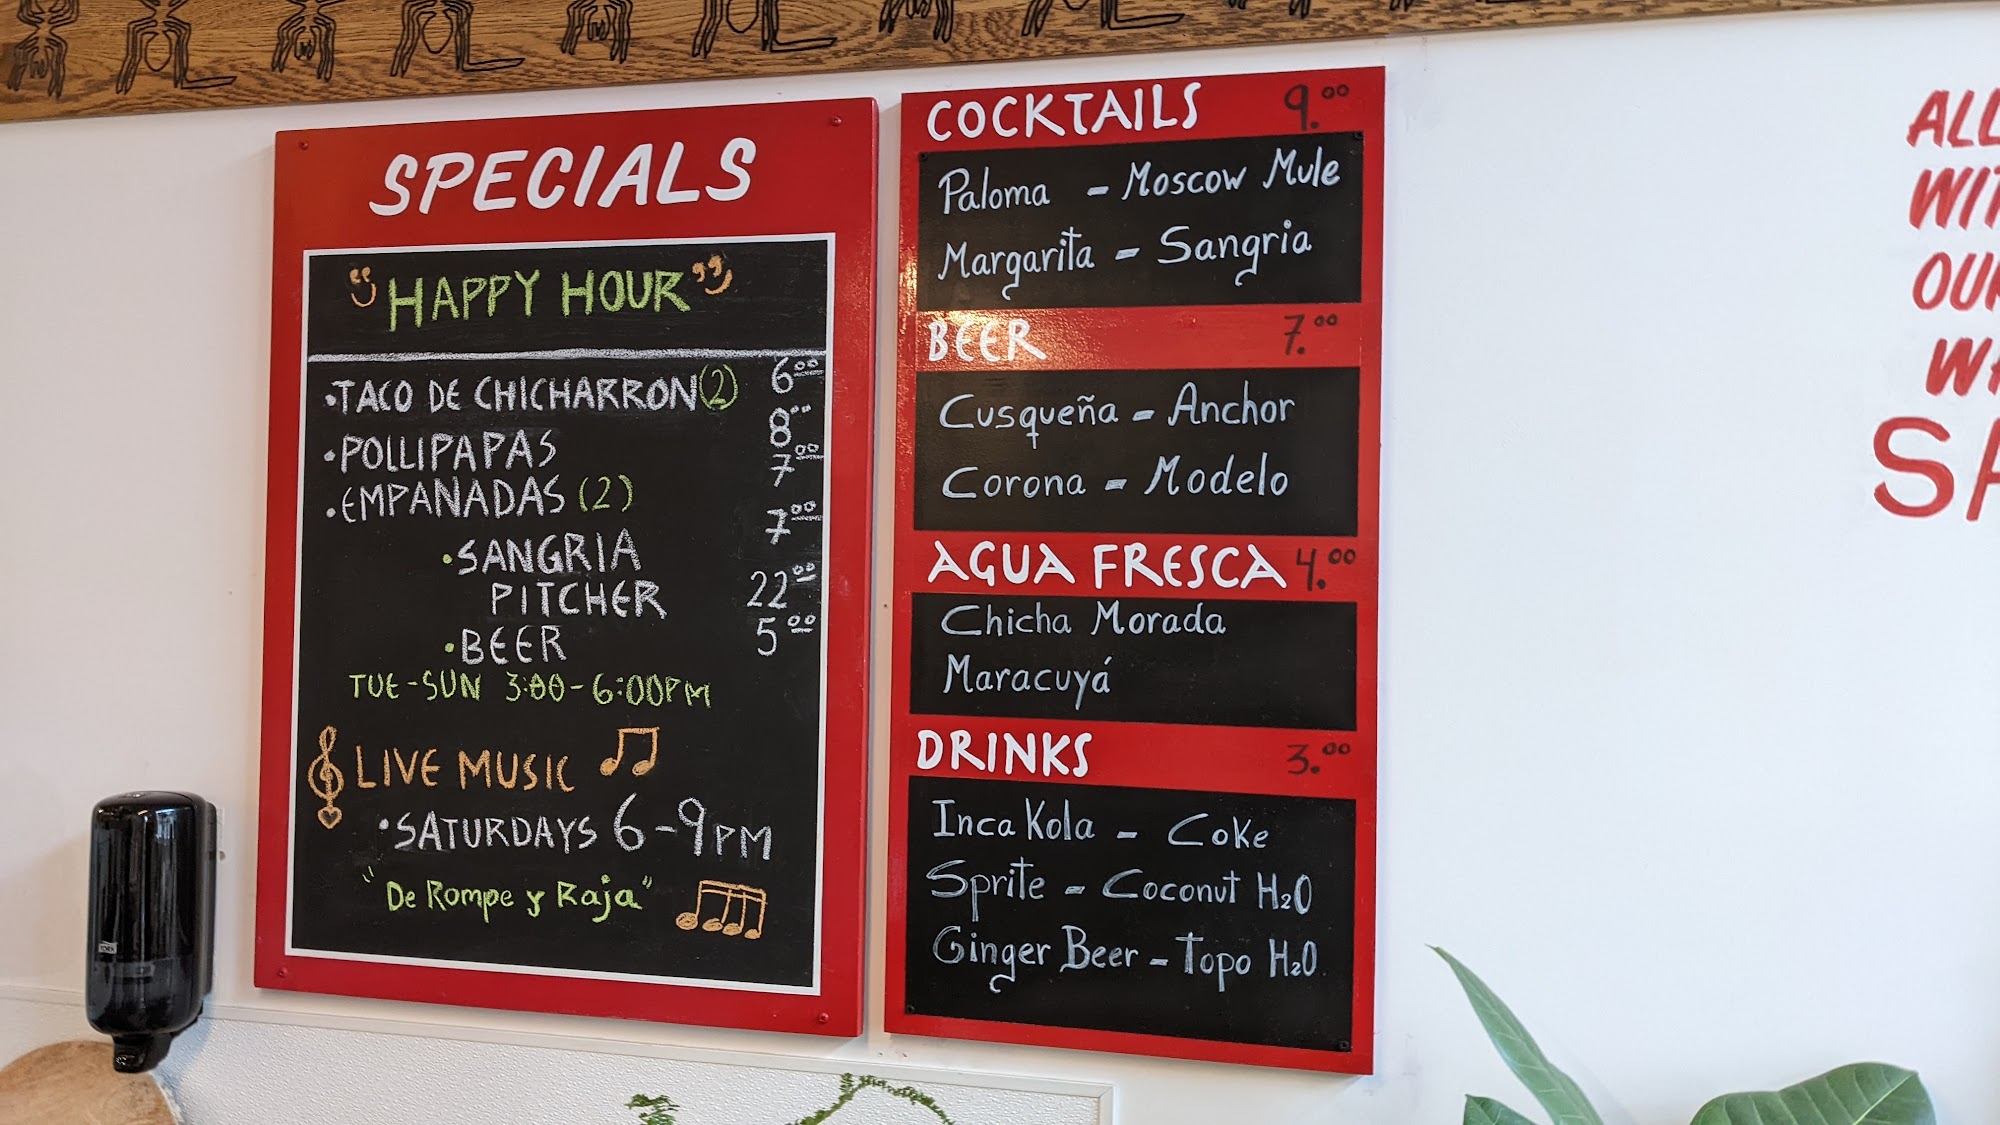 SPECIALS
HAPPY HOUR
• TACO DE CHICHARRON (2) 6.00
• POLLIPAPAS 8.00
• EMPANADAS (2) 7.00
7.00
• SANGRIA
PITCHER 22.00
• BEER 5.00
TUE-SUN 3:00-6:00PM
LIVE MUSIC
• SATURDAYS 6-9PM
"De Rompe y Raja"
COCKTAILS 9.00
Paloma - Moscow Mule
Margarita - Sangria
BEER 7.00
Cusqueña - Anchor
Corona - Modelo
AGUA FRESCA 4.00
Chicha Morada
Maracuyá
DRINKS 3.00
Inca Kola - Coke
Sprite - Coconut H₂O
Ginger Beer - Topo H₂O
ALL
WIT
OUR
WA
SA